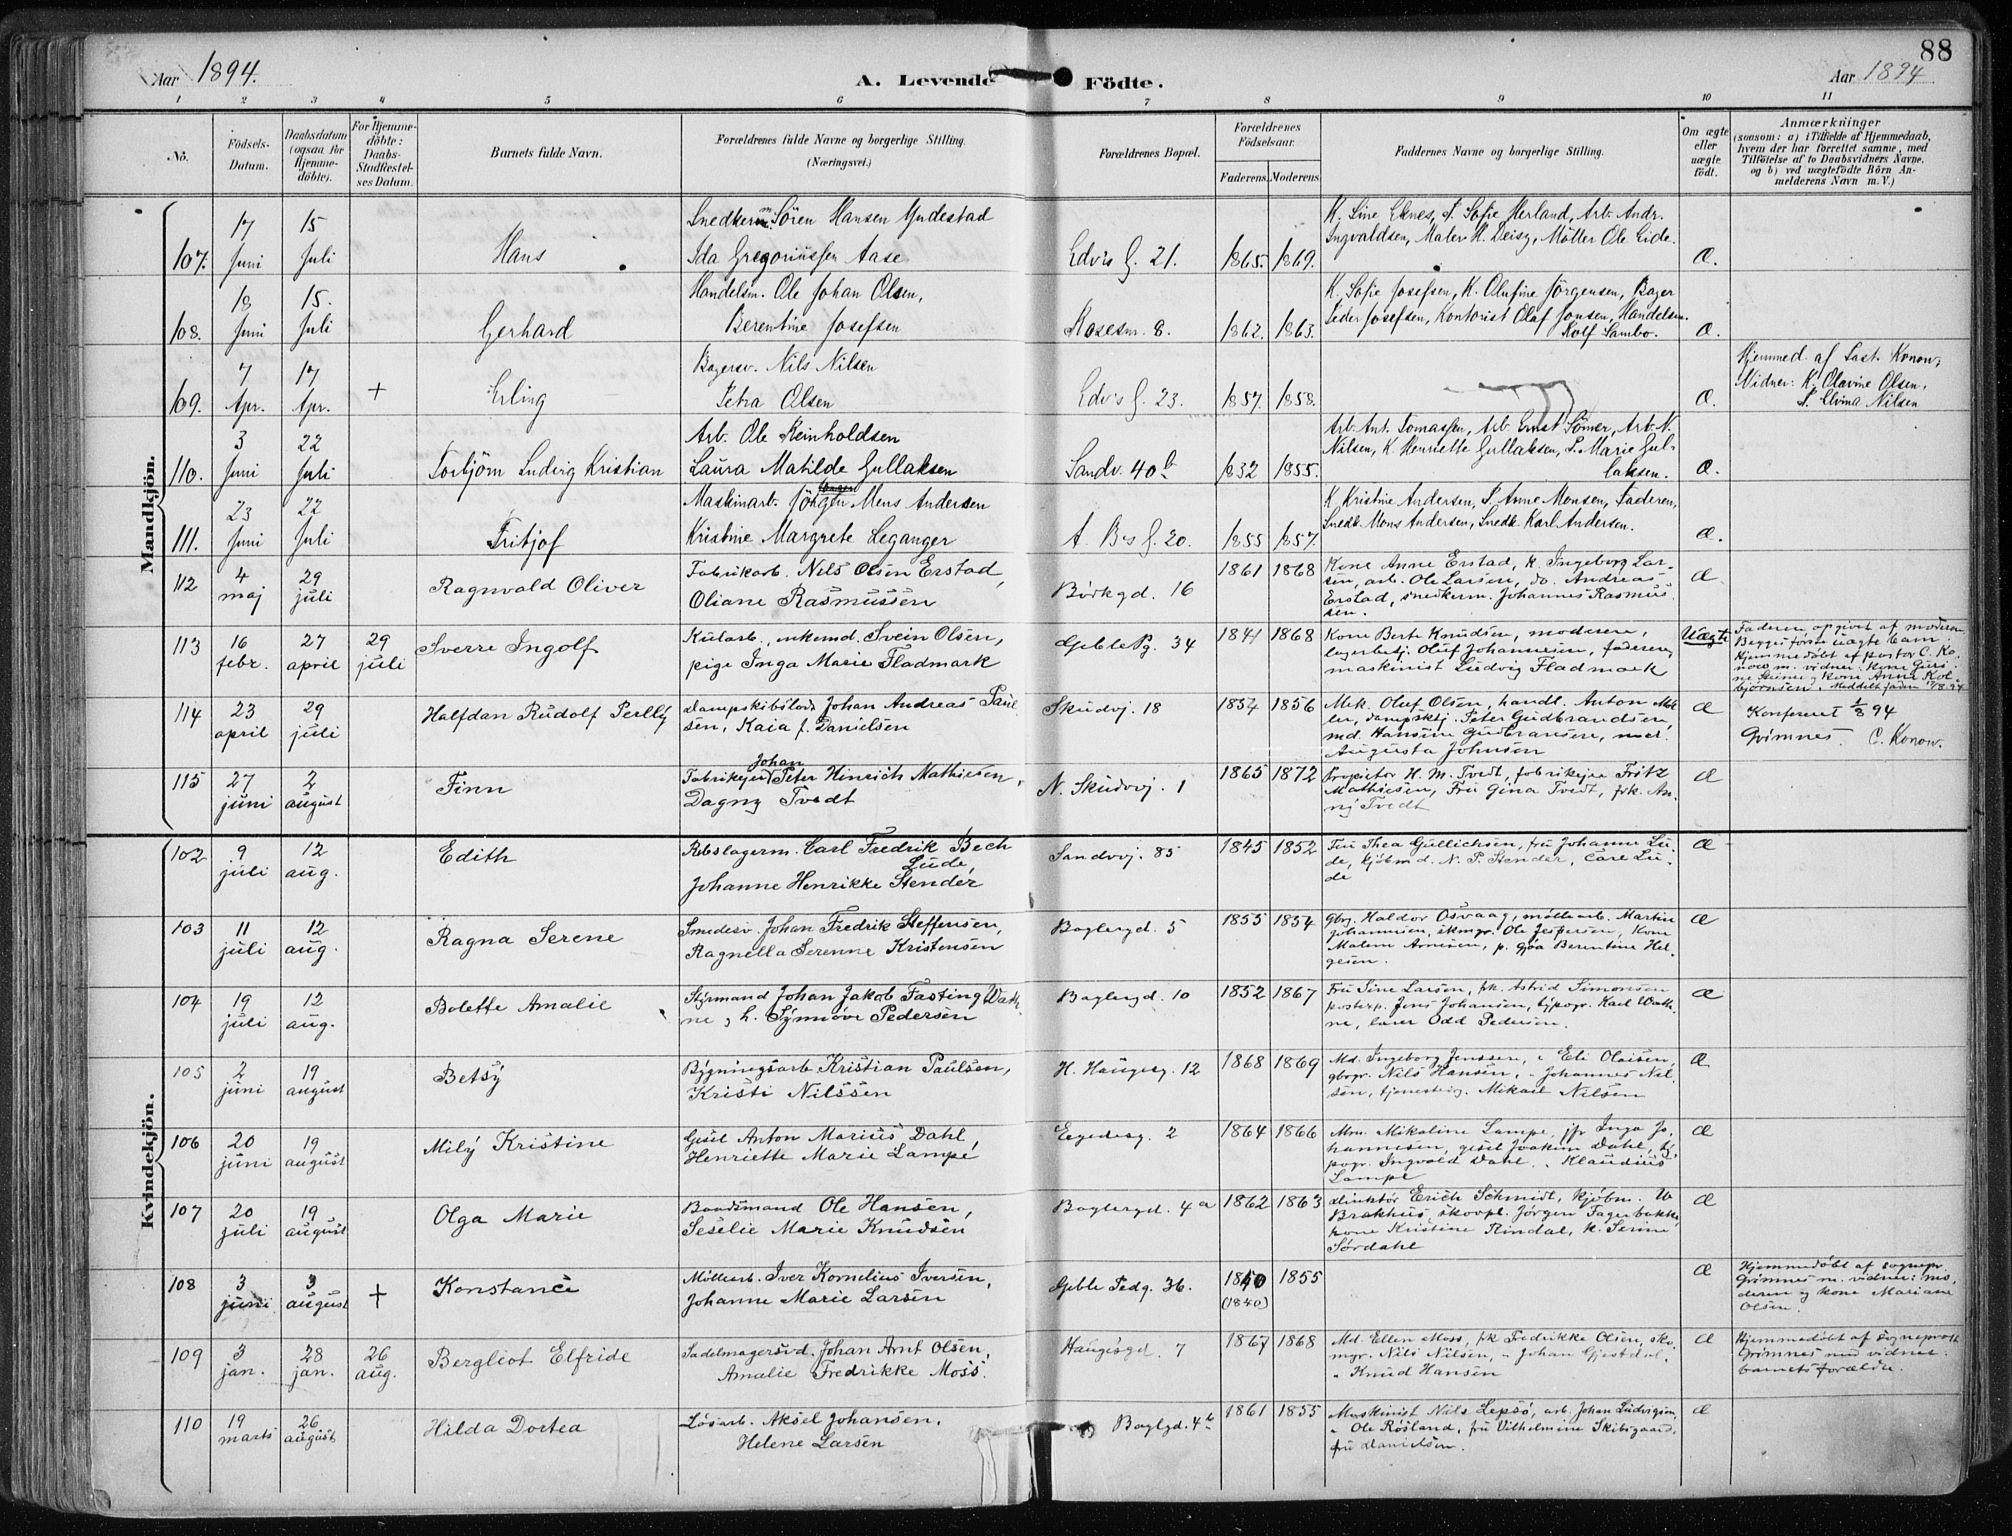 88
Aar 1894.
A. Levende Födte.
Aar 1894
1 2 3 4 5 6 7 8 9 10 11
No.
Födsels-Datum.
Daabsdatum (ogsaa for Hjemme-döbte).
For Hjemme-döbte: Daabs-Stadfæstel-ses Datum.
Barnets fulde Navn.
Forældrenes fulde Navne og borgerlige Stilling.
(Næringsvei.)
Forældrenes Bopæl.
Forældrenes Födselsaar.
Faderens. Moderens.
Faddernes Navne og borgerlige Stilling.
Om ægte eller uægte födt.
Anmærkninger
(saasom: a) i Tilfælde af Hjemmedaab,
hvem der har forrettet samme, med
Tilföielse af to Daabsvidners Navne,
og b) ved uægtefödte Börn An-
melderens Navn m. V.)
Mandkjön.
107. 17 Juni 15 Juli Hans
Snedkerm. Sören Hansen Yndestad
Ida Gregoriussen Aase
Edv's G. 21. 1865. 1869.
K. Sine Eknes, P. Sofie Herland, Arb. Andr.
Ingvaldsen, Maler H. Deisz, Möller Ole Eide.
Æ.
108. 18 Juni 15. Juli Gerhard
Handelsm. Ole Johan Olsen,
Berentine Josefsen
Rosesm. 8. 1862. 1863.
K. Sofie Josefsen, K. Olufine Jörgensen, Bager
Peder Josefsen, Kontorist Olaf Jonsen, Handelsm.
Rolf Sambo.
Æ.
109. 7 Apr. 17 Apr. + Erling
Bagersv. Nils Nilsen
Petra Olsen
Edv's G. 23. 1857. 1858.
Æ.
Hjemmed. af Past. Konow,
Vidner: K. Olavine Olsen,
P. Elvina Nilsen
110. 3 Juni 22 Juli Torbjörn Ludvig Kristian
Arb. Ole Reinholdsen
Laura Matilde Gullaksen
Sandv. 40b 1832 1855.
Arb. Ant. Tomassen, Arb. Ernst Sömer, Arb. N.
Nilsen, K. Henriette Gullaksen, P. Marie Gul-
laksen.
Æ.
111. 23 Juni 22 Juli Fritjof
Maskinarb. Jörgen Mons Andersen
Kristine Margrete Leganger
A. B's G. 20. 1855 1857.
K Kristine Andersen, P. Anne Monsen, Faderen,
Snedk. Mons Andersen, Snedk. Karl Andersen.
Æ.
112 4 maj 29 juli Ragnvald Oliver
Fabrikarb. Nils Olsen Erstad,
Oliane Rasmussen
Börkgd. 16 1861 1868
Kone Anne Erstad, k. Ingeborg Lar-
sen, arb. Ole Larsen, do. Andreas
Erstad, snedkerm. Johannes Rasmus-
sen.
Æ
113 16 febr. 27 april 29 juli Sverre Ingolf
Kularb., enkemd. Svein Olsen,
pige Inga Marie Fladmark
Geble Pg. 34 1841 1868
Kone Berte Knudsen, moderen,
lagerbetj. Oluf Johannesen, faderen,
maskinist Ludvig Fladmark
Uægte
Faderen opgivet af moderen
Begges förste uægte barn.
Hjemmedöbt af pastor C. Ko-
now m. vidner: kone Guri-
ne Steine og kone Anna Kol-
björnsen. Meddelt faden 17/8 94
114 23 april 29 juli Halfdan Rudolf Perlly
Dampskibslods Johan Andreas Paul-
sen, Kaia f. Danielsen
Skudvj. 18 1854 1856
Mek. Oluf Olsen, handl. Anton Mel-
ler, dampskbj. Peter Gudbrandsen
md. Hansine Gudbransen, mad.
Augusta Johnsen
Æ
Konfereret 1/8 94
Grimnes. C. Konow.
115 27 juni 2 august Finn
Fabrikejer Johan Peter Hinrich Mathiesen,
Dagny Tvedt
N. Skudvj. 1 1865 1872
Proprietør H. M. Tvedt, fabrikejer Fritz
Mathiesen, Fru Gina Tvedt, frk. An-
ny Tvedt
Æ
Kvindekjön.
102 9 juli 12 aug. Edith
Rebslagerm. Carl Fredrik Bech
Lude,
Johanne Henrikke Stender
Sandvj. 85 1845 1852
Fru Thea Gullichsen, fru Johanne Lu-
de, kjöbmd. N. P. Stender, Carl Lu-
de
Æ
103 11 juli 12 aug. Ragna Serene
Smedesv. Johan Fredrik Steffensen,
Ragnella Serenne Kristensen
Baglergd. 5 1855 1854
Gbrg. Haldor Osvaag, möllearb. Martin
Johannesen, skmgr. Ole Jespersen, kone
Malene Arnesen, p. Gjöa Berentine Hel-
gesen.
Æ
104 19 juli 12 aug. Bolette Amalie
Styrmand Johan Jakob Fasting Wath-
ne, h. Synnöve Pedersen
Baglergd. 10 1852 1867
Fru Sine Larsen, frk. Astrid Simonsen
postexp. Jens Johansen, typogr. Karl Wath-
ne, lærer Odd Pedersen.
Æ
105 2 juni 19 august Betsy
Bygningsarb Kristian Paulsen,
Kristi Nilssen
H. Haugesg. 12 1868 1869
Md. Ingeborg Jenssen, " Eli Olaisen,
gbrgr. Nils Hansen, " Johannes Nil-
sen, tjenesteg. Mikael Nilsen
Æ
106 20 juni 19 august Mily Kristine
Gisel Anton Marius Dahl,
Henriette Marie Lampe
Eegedesg. 2 1864 1866
Mm. Mikaline Lampe, jfr Inga Jo-
hannesen, gisel Joakim Dahl, ty-
pogr. Ingvald Dahl, " Klaudius
Lampe
Æ
107 20 juli 19 august Olga Marie
Baadsmand Ole Hansen,
Seselie Marie Knudsen
Baglergd. 4a 1862 1863
Direktör Erich Schmidt, kjöbm. W
Brakhus skovpl. Jörgen Fagerbakke,
kone Kristine Rindal, k. Serine
Sördahl
Æ
108 3 juni 3 august + Konstance
Möllearb. Iver Kornelius Iversen,
Johanne Marie Larsen
Geble Pedg. 36. 1840 (1840) 1855
Æ
Hjemmedöbt af sognepr
Grimnes m. vidner: mo-
deren og kone Mariane
Olsen.
109 3 jan. 28 jan. 26 aug. Bergliot Elfride
Sadelmagersvd. Johan Arnt Olsen,
Amalie Fredrikke Moss.
Haugesgd. 7 1867 1868
Md. Ellen Moss, frk Fredrikke Olsen, sko-
mgr. Nils Nilsen, " Johan Gjestdal,
" Knud Hansen
Æ
Hjemmedöbt af sogneprest
Grimnes med vidner:
barnets forældre.
110 19 marts 26 august Hilda Dortea
Lösarb. Aksel Johansen,
Helene Larsen
Baglgd. 4b 1861 1855
Maskinist Nils Lepsö, arb. Johan Ludvigsen,
" Ole Rösland, fru Vilhelmine Skibsgaard,
fru Danielsen.
Æ